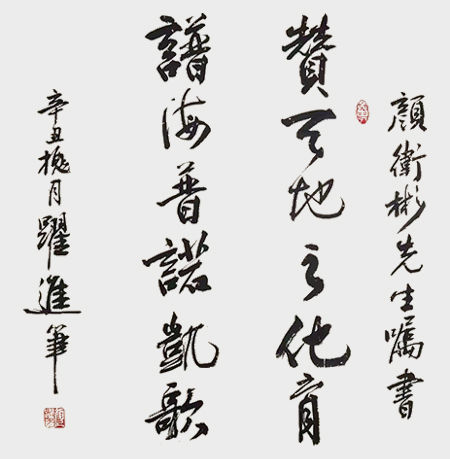 顔衛彬先生囑書
贊天地之化育
譜海普諾凱歌
辛丑槐月躍進筆